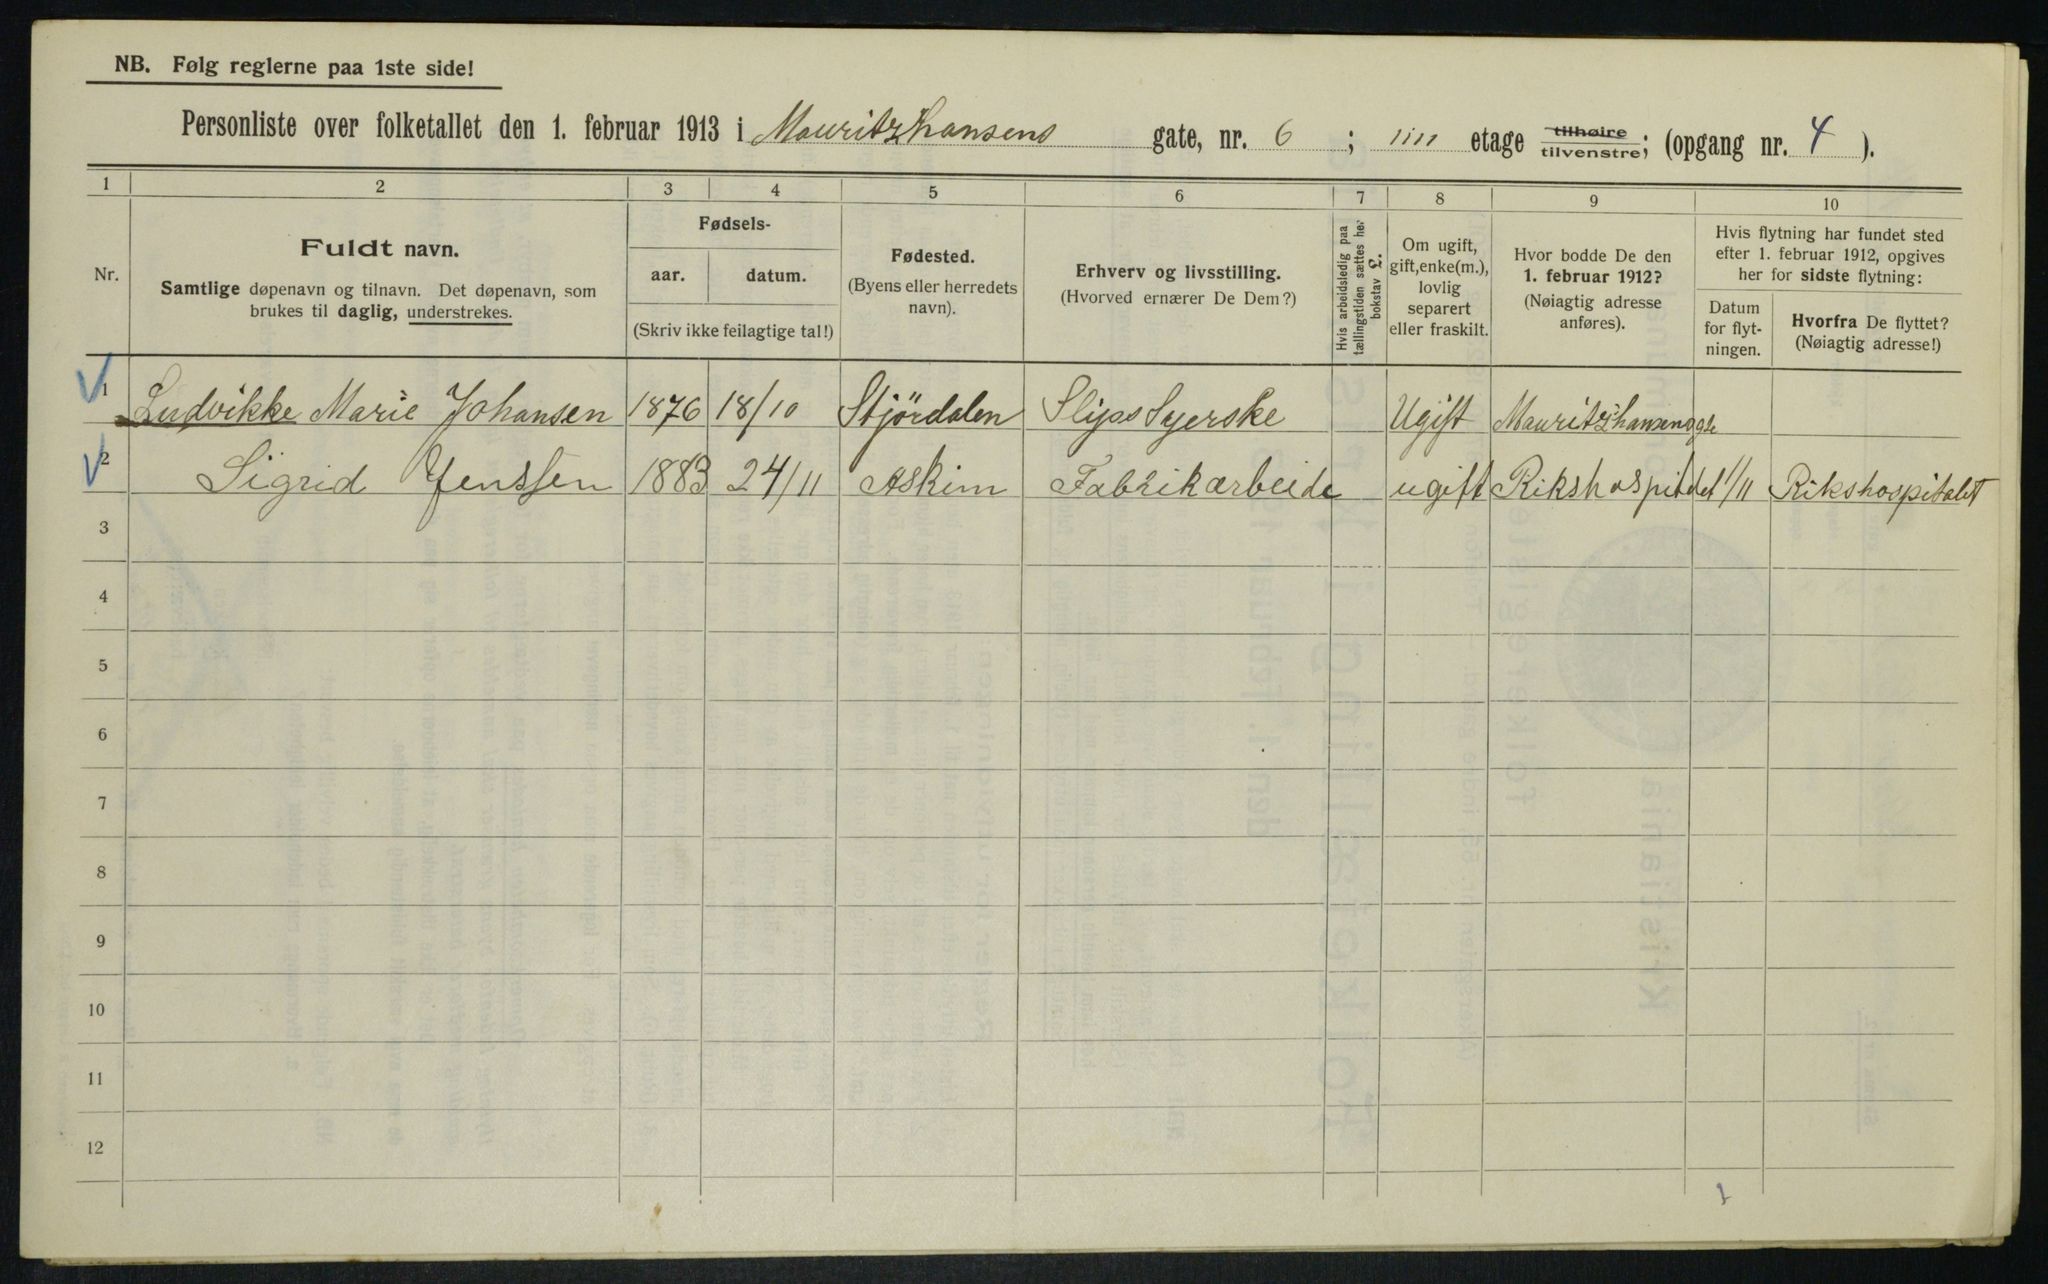 NB. Følg reglerne paa 1ste side!
Personliste over folketallet den 1. februar 1913 i Mauritz Hansens gate, nr. 6; IIII etage tilhøire tilvenstre; (opgang nr. 4).
1 2 3 4 5 6 7 8 9 10
Nr.
Fuldt navn.
Samtlige døpenavn og tilnavn. Det døpenavn, som
brukes til daglig, understrekes.
Fødsels-
aar. datum.
(Skriv ikke feilagtige tal!)
Fødested.
(Byens eller herredets
navn).
Erhverv og livsstilling.
(Hvorved ernærer De Dem?)
Hvis arbeidsledig paa
tællingstiden sættes her
bokstav L.
Om ugift,
gift, enke(m.),
lovlig
separert
eller fraskilt.
Hvor bodde De den
1. februar 1912?
(Nøiagtig adresse
anføres).
Hvis flytning har fundet sted
efter 1. februar 1912, opgives
her for sidste flytning:
Datum
for flyt-
ningen.
Hvorfra De flyttet?
(Nøiagtig adresse!)
1 Ludvikke Marie Johansen 1876 18/10 Stjørdalen Slips Syerske Ugift Mauritz hansensgt
2 Sigrid Jenssen 1883 24/11 Askim Fabrikarbeide ugift Rikshospitalet 1/11 Rikshospitalet
3
4
5
6
7
8
9
10
11
12
1